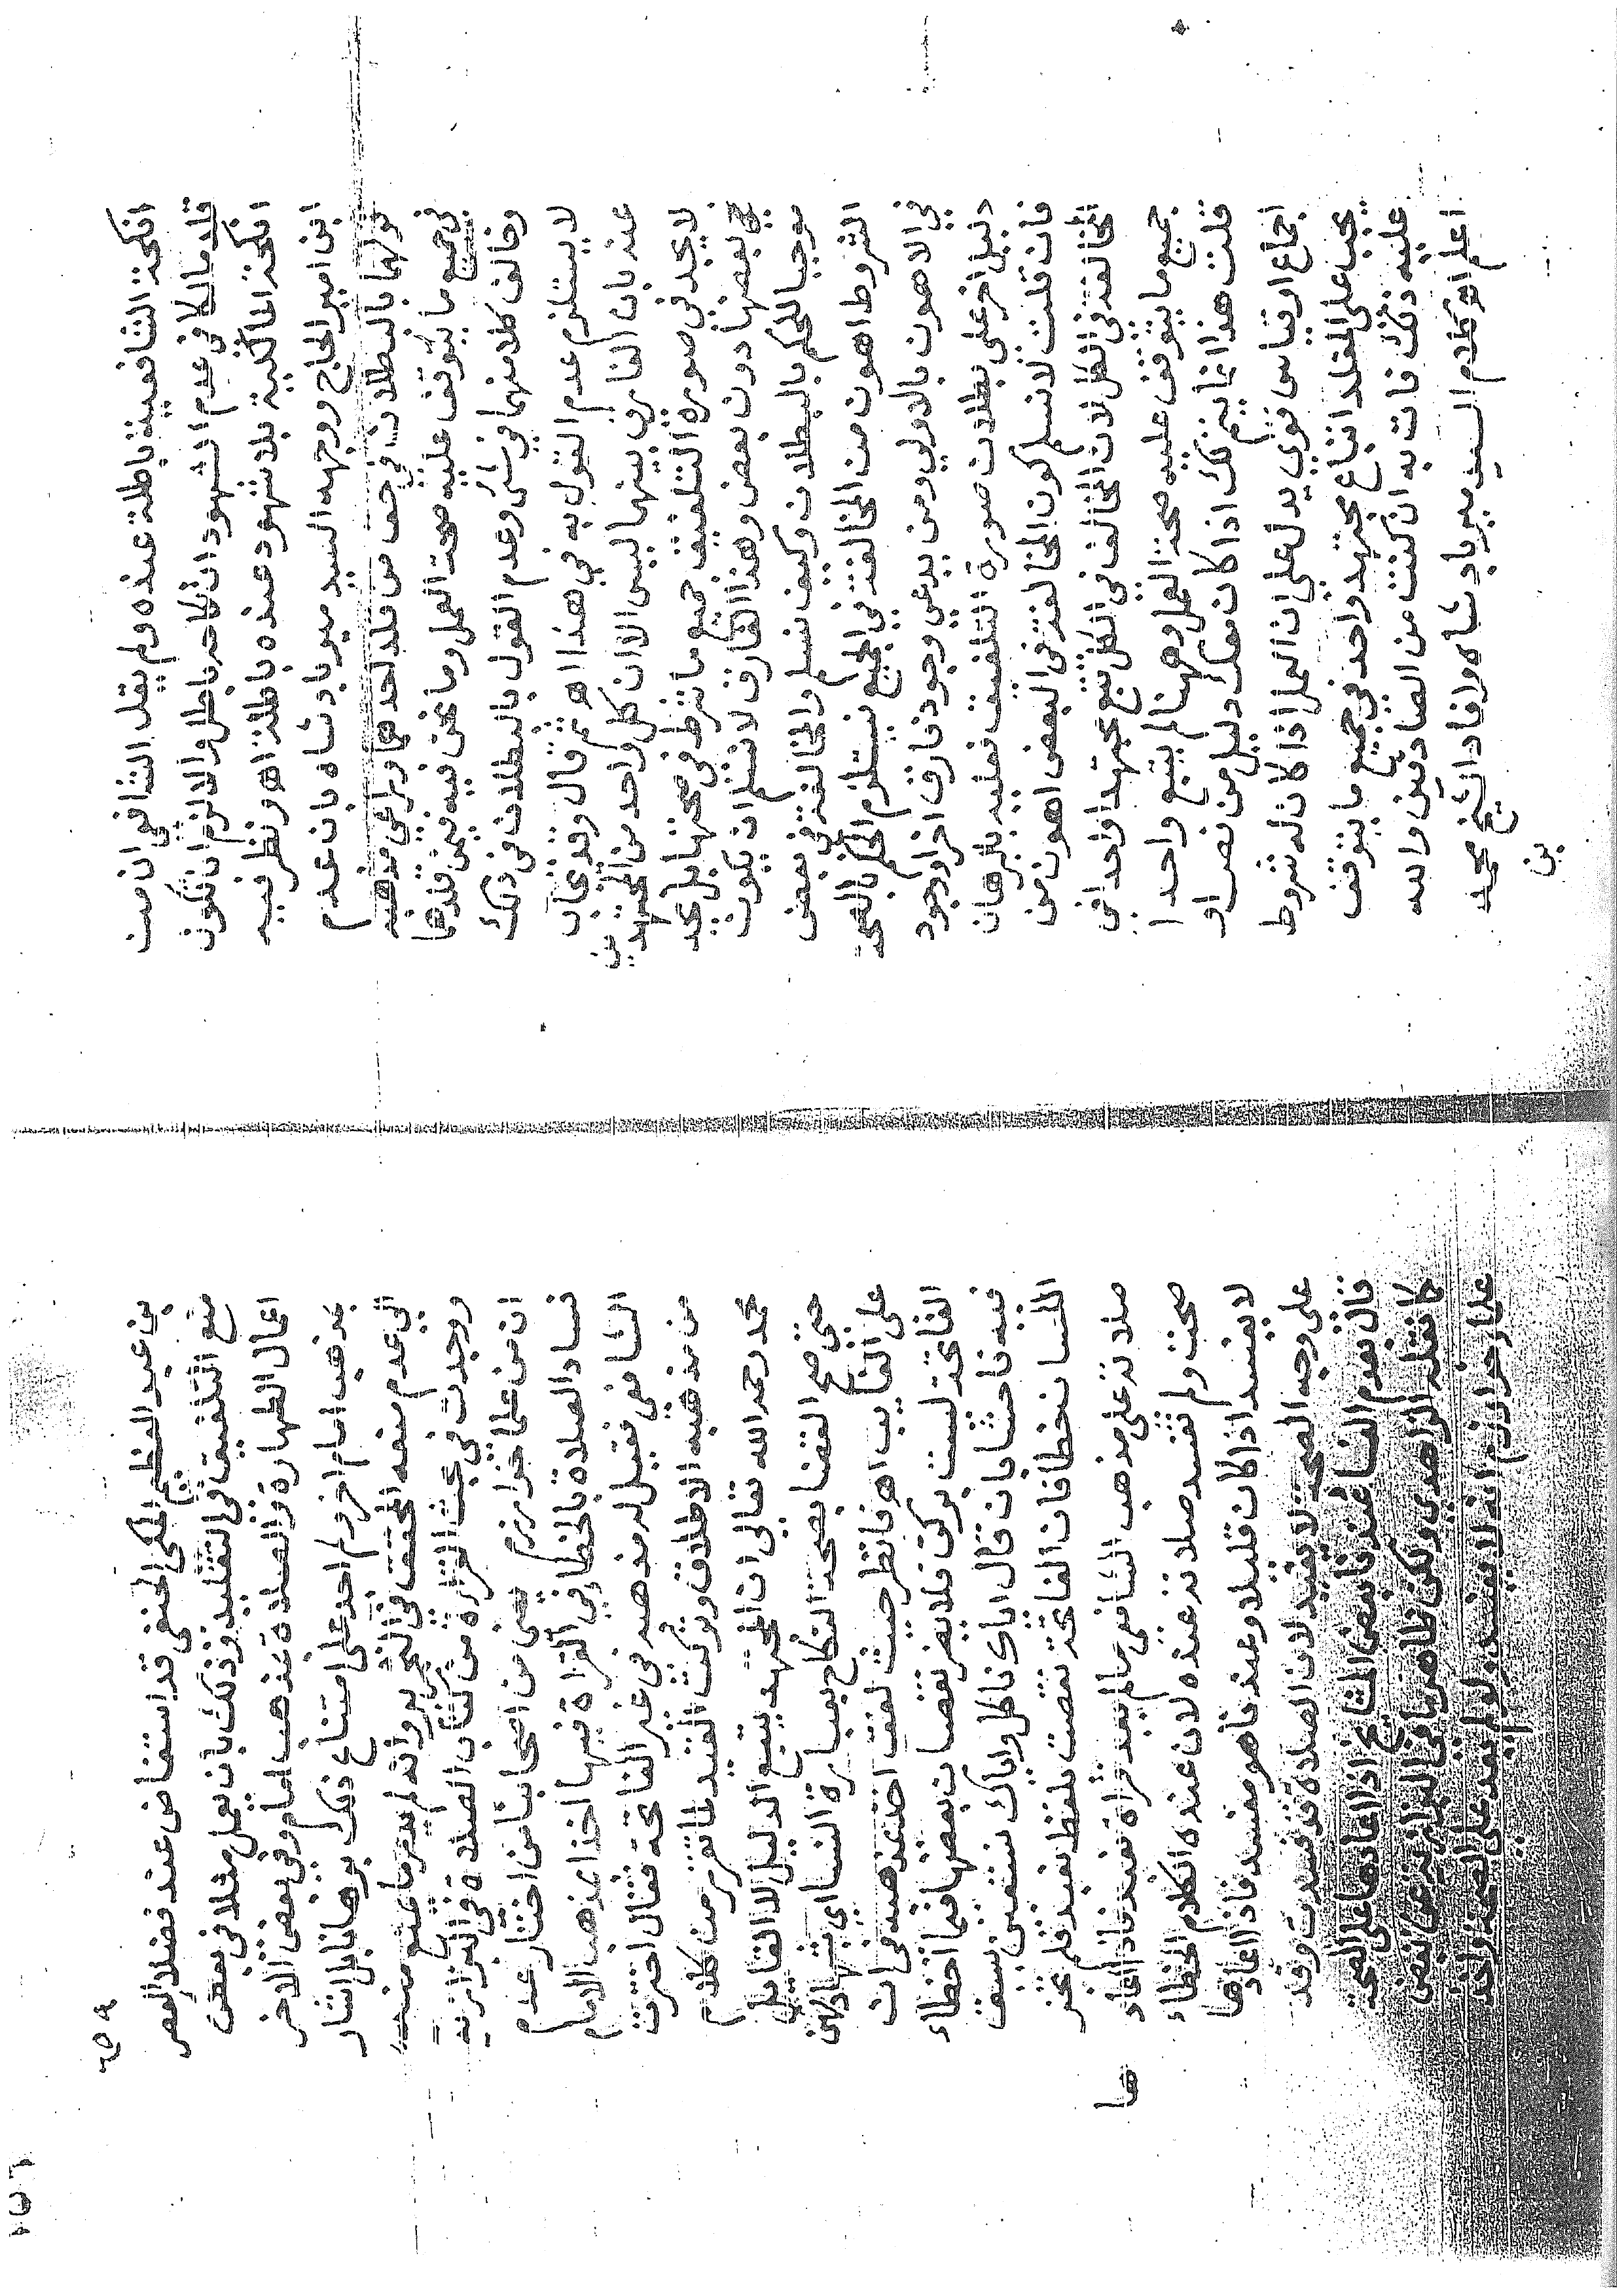 انكحة الشافعية باطلة عنده ولم يقل الشافعي ان من
قلد مالكا في عدم الشهود ان نكاحه باطل والا لزم ان تكون
انكحة المالكية بلا شهود عنده باطلة اهـ ونظر فيه
ابن امير الحاج ووجهه السيد مير بادشاه بان عدم
قولهما بالبطلان في حق من قلد احدهما وراعى مذهبه
في جميع ما يتوقف عليه صحة العمل وما نحن فيه فيمن قلدهما
وخالف كلا منهما في شئ وعدم القول بالبطلان في ذلك
لا يستلزم عدم القول به في هذا اهـ ثم قال وقد يجاب
عنه بان الفارق بينهما ليس الا ان كل واحد من المجتهدين
لا يجد في صورة التلفيق جميع ما شرط في صحتها بل يجد
في بعضها دون بعض وهذا الفارق لا نسلم ان يكون
موجبا للحكم بالبطلان وكيف نسلم والمخالفة في بعض
الشروط اهون من المخالفة في الجميع فيستلزم الحكم بالصحة
في الاهون بالاولى ومن يدعي وجود فارق اخر او وجود
دليل اخر على بطلان صورة التلفيق فعليه بالبرهان
فان قلت لا نسلم كون المخالفة في البعض اهون من
المخالفة في الكل لان المخالف في الكل تبع مجتهدا واحدا في
جميع ما يتوقف عليه صحة العمل وههنا لم يتبع واحدا
قلت هذا انما يتم لك اذا كان معك دليل من نص او
اجماع او قياس قوي يدل على ان العمل اذا كان له شروط
يجب على المقلد اتباع مجتهد واحد في جميع ما يتوقف
عليه ذلك فات به ان كنت من الصادقين والله
اعلم اهـ كلام السيد مير بادشاه وافاد الشيخ محمد
بن
٥٩
بن عبد العظيم المكي الحنفي قد استفاض عند فضلا العصر
منع التلفيق في التقليد وذلك بان يعمل مثلا في بعض
اعمال الطهارة والصلاة بمذهب امام وفي بعض الاخر
بمذهب امام اخر ولم اجد على امتناع ذلك برهانا بل اشار
الى عدم منعه المحقق في التحرير وانه لم يدر ما يمنع منه
ووجدت في بحث القراءة من كتاب الصلاة في البزازية
ان من علما خوارزم من اصحابنا من اختار عدم
فساد الصلاة بالخطا في القراة فيها اخذا بمذهب الامام
الشافعي فقيل له مذهبه في غير الفاتحة فقال اخترت
من مذهبه الاطلاق وتركت القيد لما تقرر من كلام
محمد رحمه الله تعالى ان المجتهد يتبع الدليل لا القايل
حتى صح القضا بصحة النكاح بعبارة النسا اي بشهادتهن
على الغايب اهـ فانظر حيث لفق اخذ بمذهبه في ان
الفاتحة ليست بركن فلا يضر نقصان بعضها فيما اخطاء
فيه فاحشا بان قال اياك ناكل واياك نستقين بسبق
اللسان خطا فان الفاتحة نقصت بلفظ نعبد فلم تجز
صلاته على مذهب الشافعي ما لم يعد قراة نعبد فاذا اعادها
صحت ولم تفسد صلاته عنده لان عنده الكلام الخطاء
لا يفسد اذا كان قليلا وعندنا هو مفسد فاذا اعادها
على وجه الصحة لا تفيد لان الصلاة قد فسدت وقد
قال بعدم الفساد عندنا بعض المشايخ اذا اعادها على الصحة
كما نقله الزاهدي ولكن ظاهر ما في البزازية عن بعض
علما خوارزم انه لا يفسد ولو لم يعد على الصحة واخذ